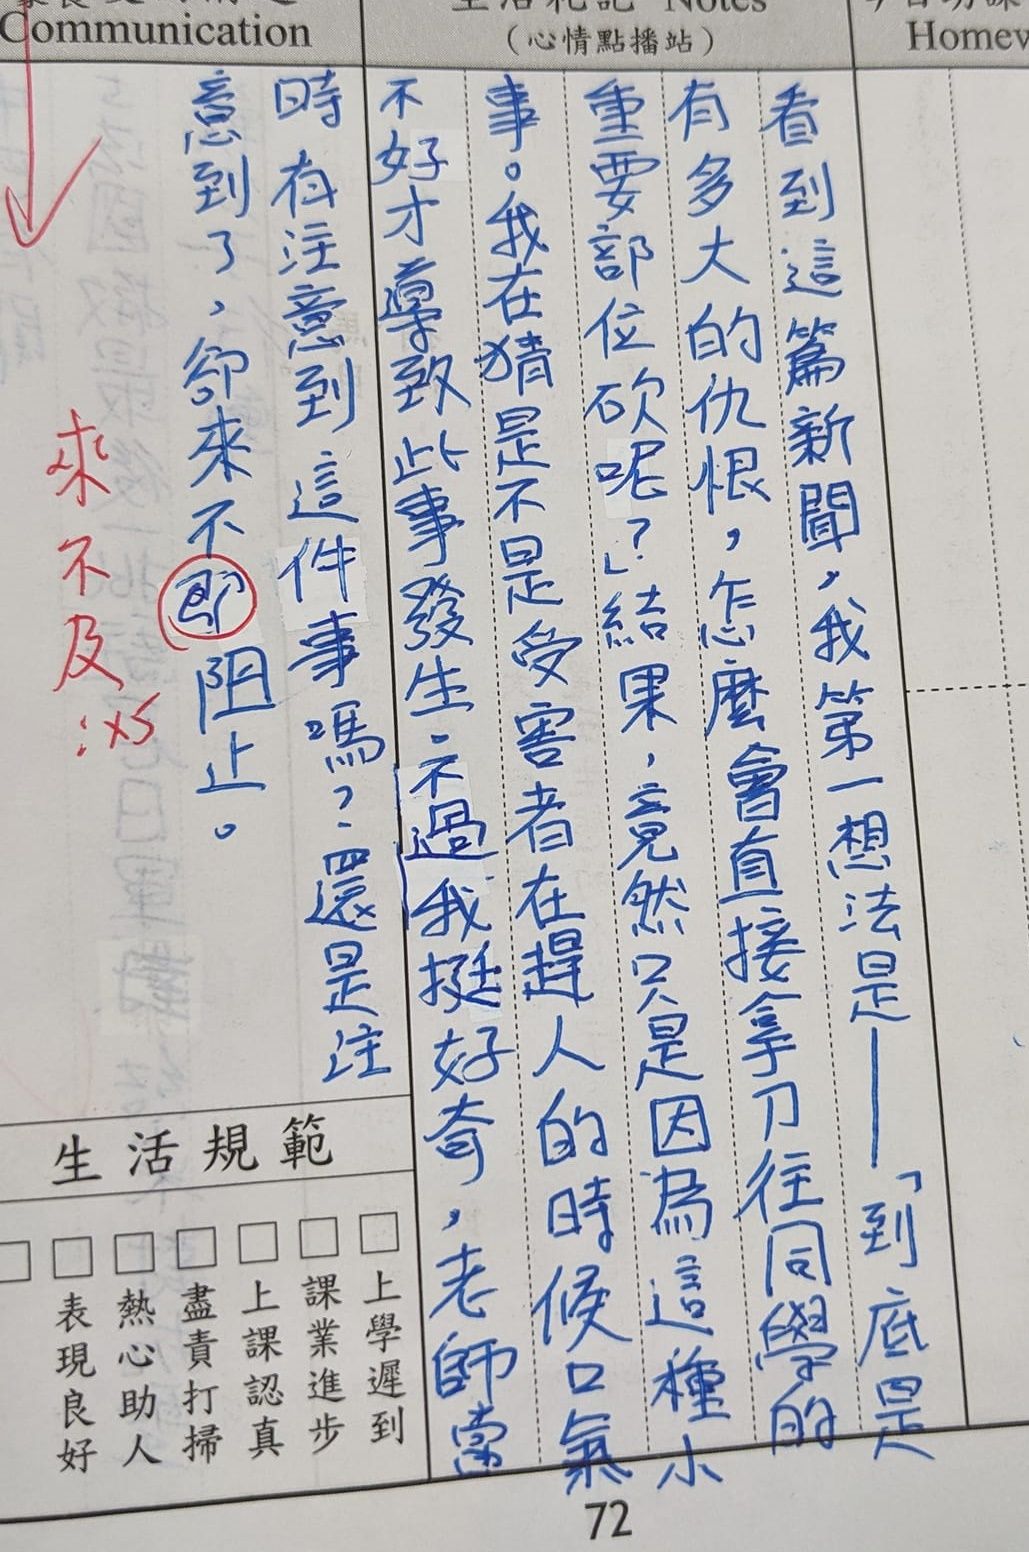 Communication
生活札記 Notes
（心情點播站）
Homew
看到這篇新聞，我第一想法是——「到底是
有多大的仇恨，怎麼會直接拿刀往同學的
重要部位砍呢？」結果，竟然只是因為這種小
事。我在猜是不是受害者在趕人的時候口氣
不好才導致此事發生。不過我挺好奇，老師當
時有注意到這件事嗎？還是注
意到了，卻來不即阻止。
來不及：x5
生活規範
上學遲到
課業進步
上課認真
盡責打掃
熱心助人
表現良好
72